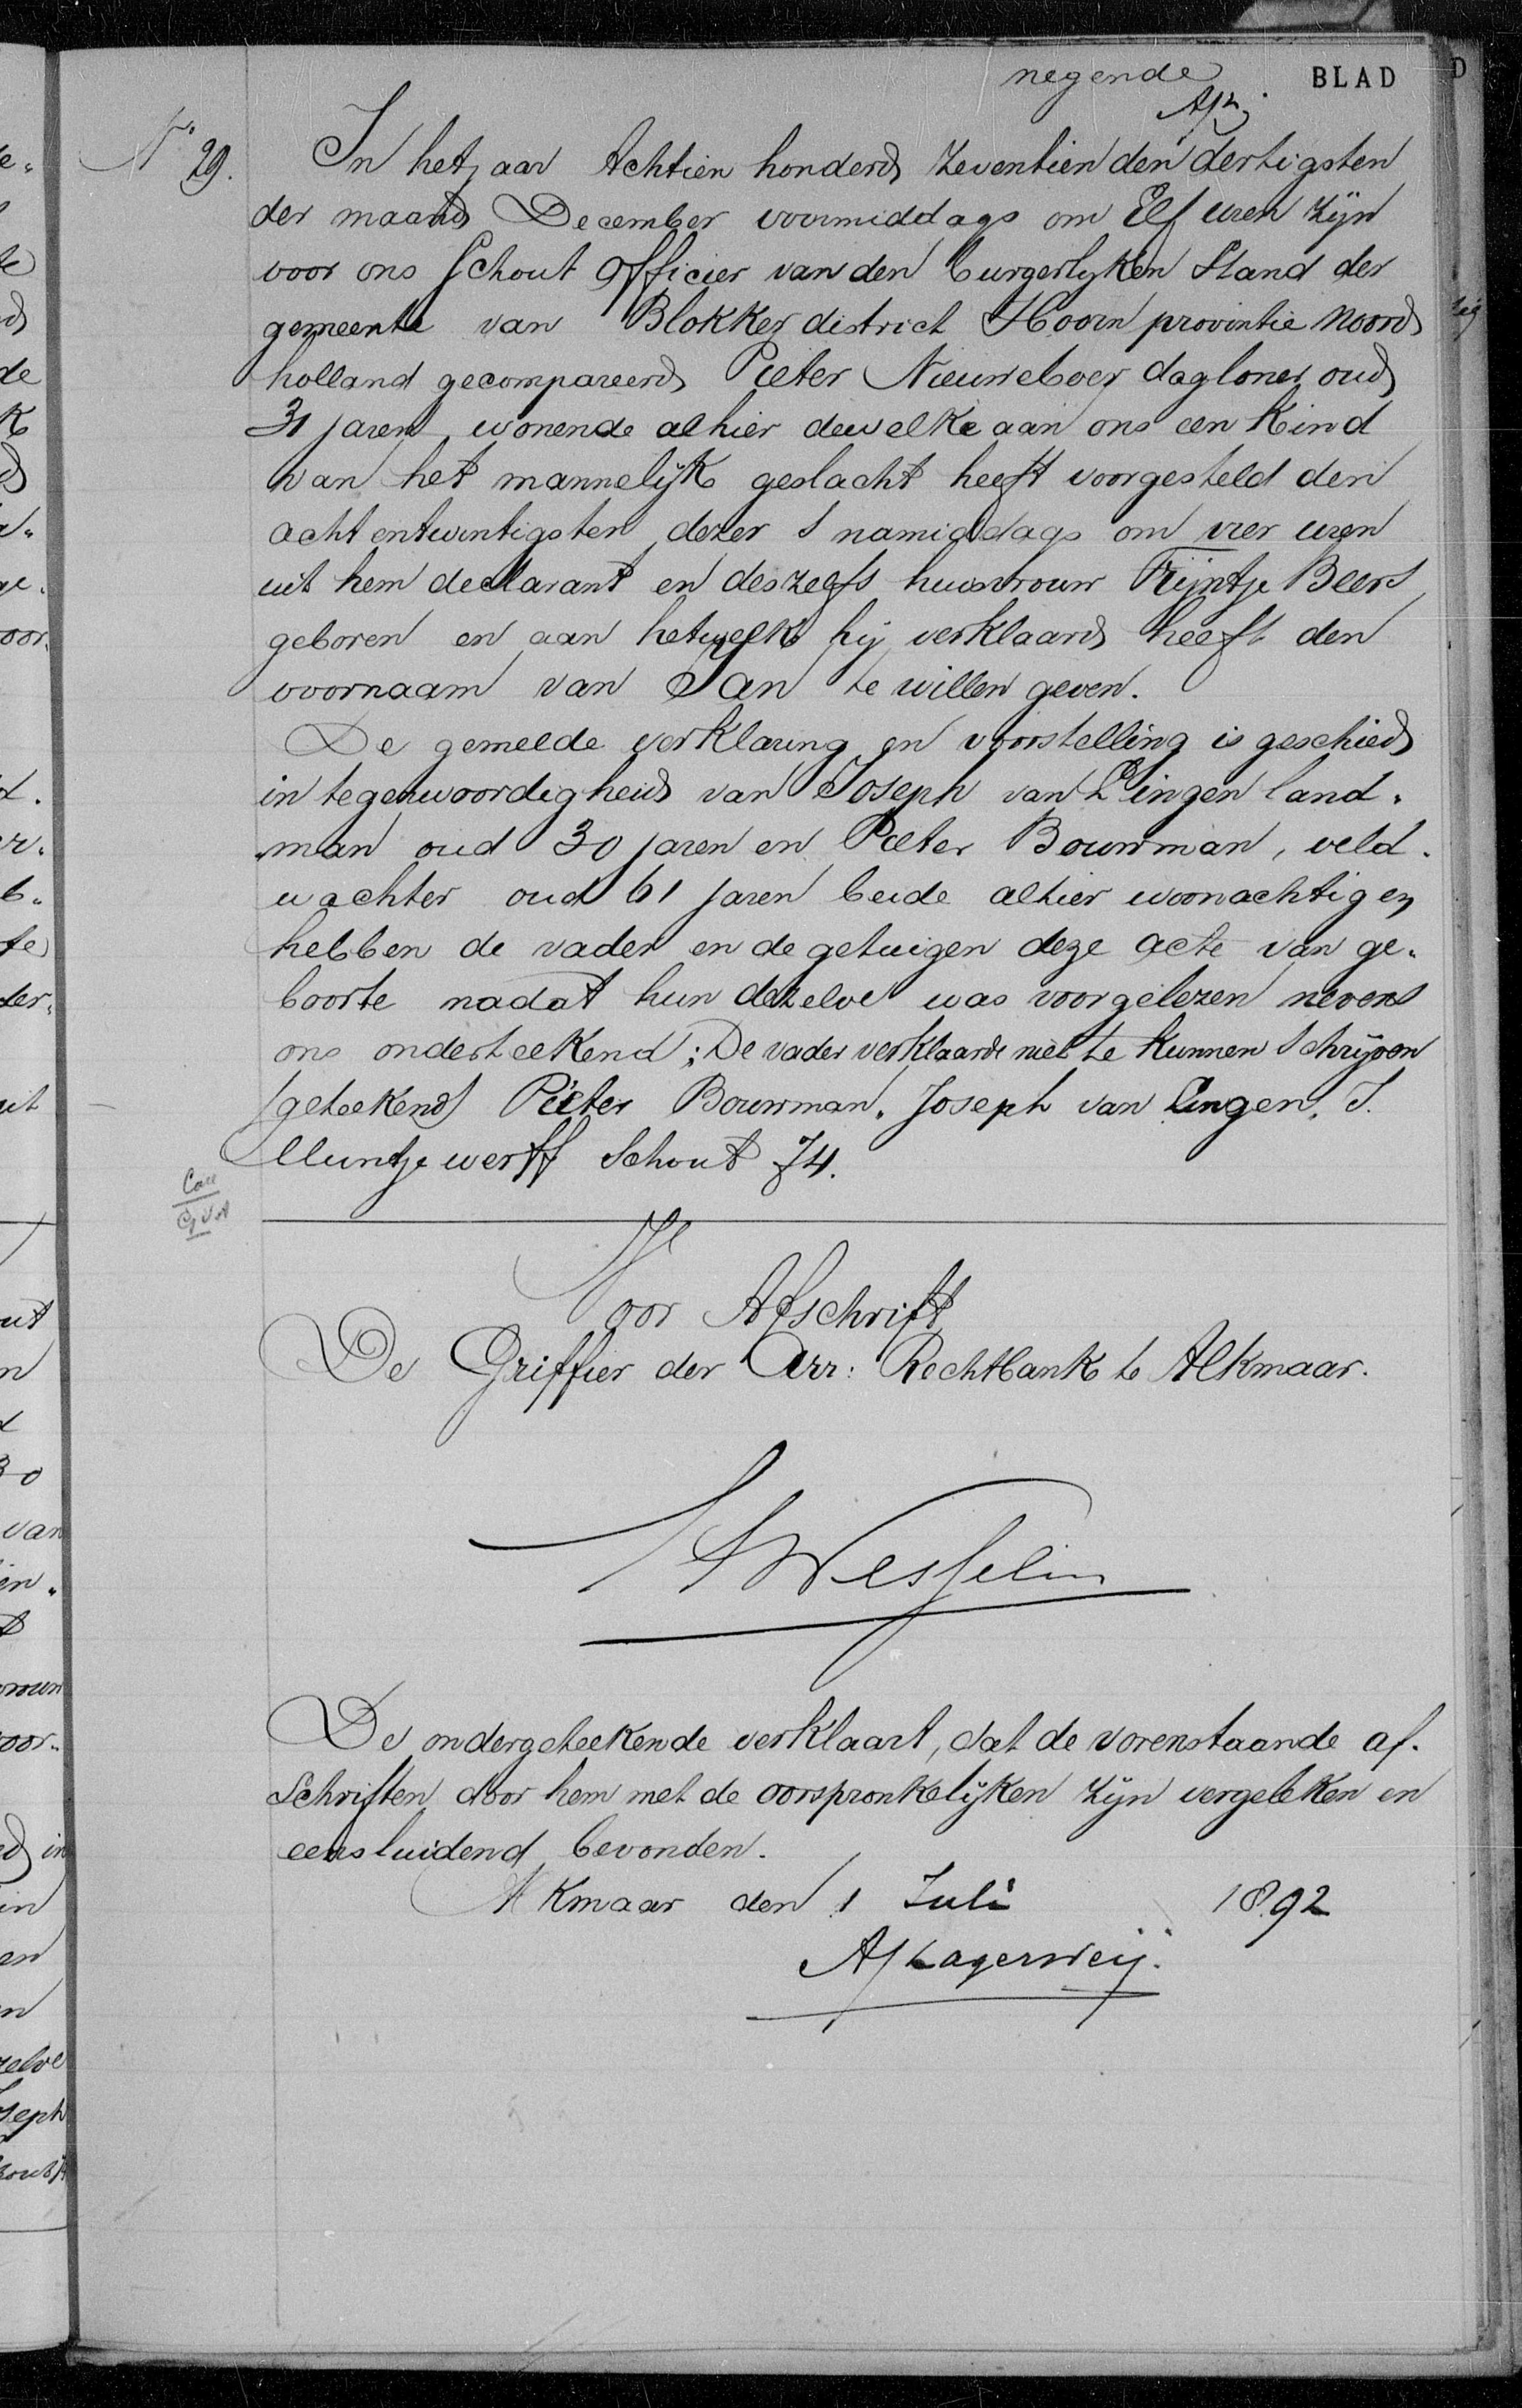 negende BLAD
N° 29. In het jaar Achtien honderd zeventien den dertigsten
der maand December voormiddags om Elf uren zijn
voor ons Schout Officier van den burgerlyken Stand der
gemeente van Blokker district Hoorn provintie Noord
holland gecompareerd Pieter Nieuweboer dagloner oud
31 jaren wonende alhier dewelke aan ons een Kind
van het mannelijk geslacht heeft voorgesteld den
acht entwintigsten dezer s namiddags om vier uren
uit hem declarant en deszelfs huisvrouw Trijntje Beers
geboren en aan hetwelk hij verklaard heeft den
voornaam van Jan te willen geven.
De gemelde verklaring en voorstelling is geschied
in tegenwoordigheid van Joseph van Lingen land-
man oud 30 jaren en Pieter Bouwman, veld-
wachter oud 61 jaren beide alhier woonachtig en
hebben de vader en de getuigen deze acte van ge-
boorte nadat hun dezelve was voorgelezen nevens
ons onderteekend; De vader verklaarde niet te kunnen schrijven
(geteekend) Pieter Bouwman, Joseph van Lingen, J.
Muntjewerff Schout 74.
Voor Afschrift
De Griffier der Arr: Rechtbank te Alkmaar.
De ondergeteekende verklaart, dat de vorenstaande af-
schriften door hem met de oorspronkelijken zijn vergeleken en
eensluidend bevonden.
Alkmaar den 1 Juli 1892
Lagerweij.